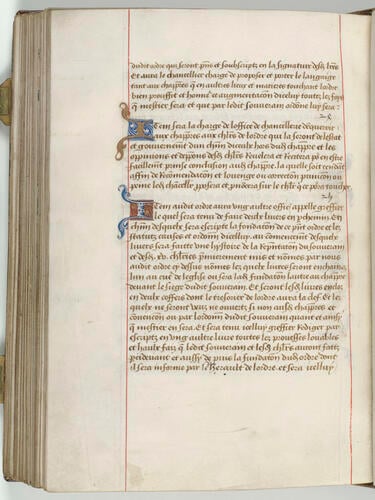 dudit ordre qui seront pns et soubscript; en la signature desd. lres
Et aura le chancellier charge de proposer et porter le langaige
tant aux chappres q en autres lieux et matieres touchant lordre
bien prouffit et honneur et augmentaon dicelluy toutes les foys
q mestier sera et que par ledit souverain ordone luy sera
Item sera la charge de loffice de chancellerie
aux chappres aux chlrs de lordre qui la seront de lestat
et gouvernement dun chun dicculx hors dudit chappre et les
oppinions et depposons desd. chlrs
feaillement prinse conclusion audit chappre la quelle soit tendant
affin de Recomendacon et louenge ou correction pruncion ou
peine led. chancellr pposera et pnucera sur le chlr q ce pora toucher
Item audit ordre aura ung autre office appelle greffier
le quel sera tenu de faire deux livres en pchemin Et
chun desquelz sera escripte la fundaton de ce pnt ordre et les
statutz causes et ordonn dicelluy. au comencement desquelz
livres sera faitte une hystoire de la Repntaton du souverain
et desd. xv. chlrs premierement mis et nomes par nous
audit ordre cy dessus nomes les quelz livres seront enchaine
lun au cuer de leglise ou sera lad. fundaton lautre au chappre
devant le siege dudit souverain. Et seront lesd. livres enclos
en deulx coffres dont le tresorier de lordre aura la clef. Et les
quelx ne seront veuz ne ouvertz si non ausd. chappres et
convencon ou par lordonn dudit souverain quant et ainsy
q mestier en sera. Et sera tenu icelluy greffier Rediger par
escript; en ung autre livre toutes les prouesses louables
et haulx fais q ledit souverain et lesd. chlrs auront fait;
precedamment et aussy depuis la fundaton dudit ordre dont
il sera informe par le herault de lordre. et sera icelluy